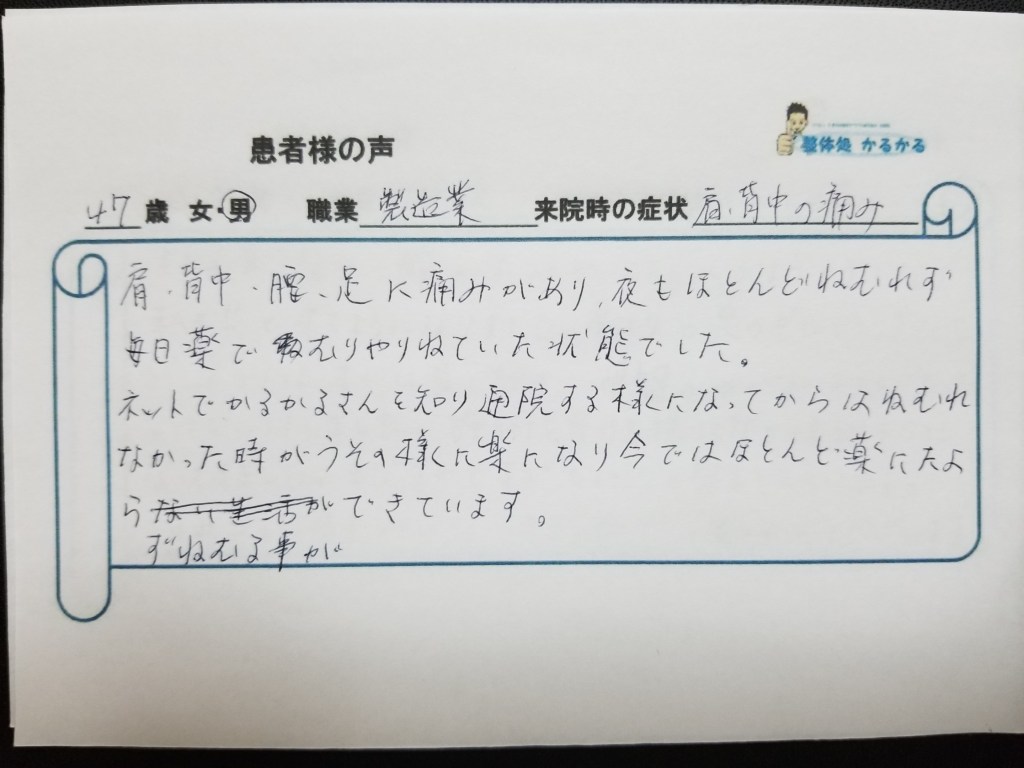 整体処 かるかる
患者様の声
47 歳 女・男 職業 製造業 来院時の症状 肩、背中の痛み
肩、背中、腰、足に痛みがあり、夜もほとんどねむれず
毎日薬でむりやりねていた状態でした。
ネットでかるかるさんを知り通院する様になってからはねむれ
なかった時がうその様に楽になり今ではほとんど薬にたよ
らない生活ができています。
ずねむる事が